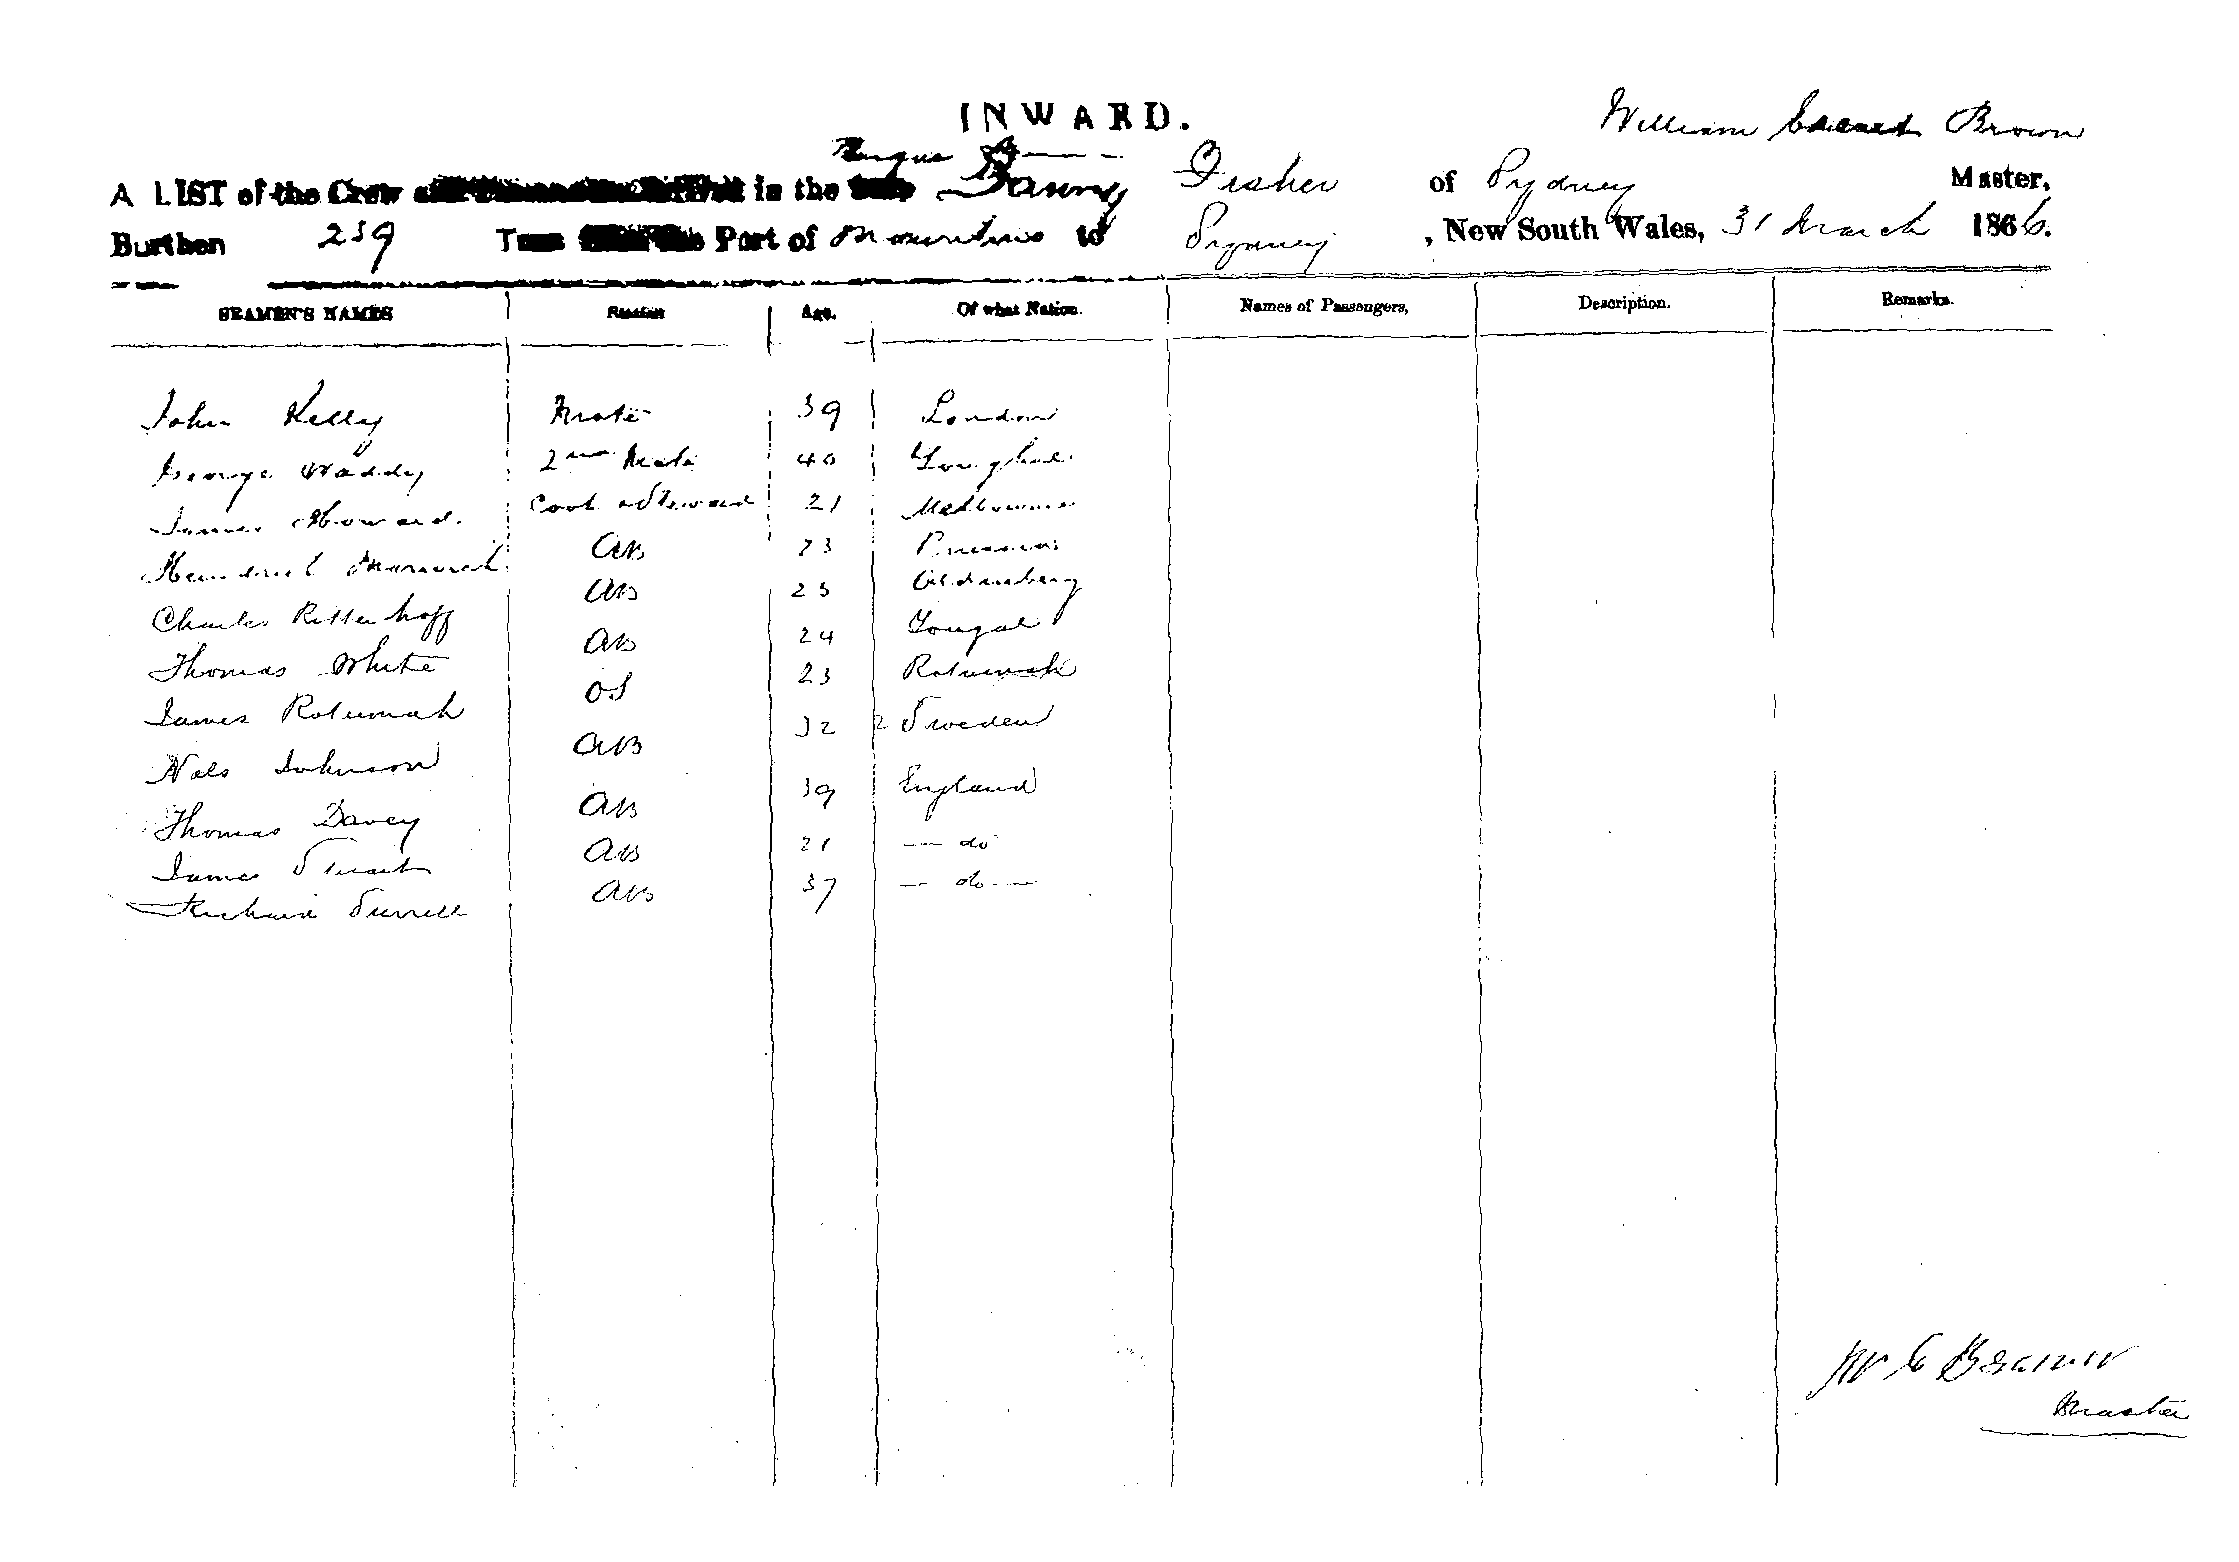 INWARD.
William Brown
A LIST of the Crew in the Fanny Fisher of Sydney Master,
Burthen 239 Tons Port of Mauritius to Sydney, New South Wales, 31 March 1866.
SEAMEN'S NAMES Station Age. Of what Nation. Names of Passengers, Description. Remarks.
John Kelly Mate 39 London
George Waddy 2nd Mate 40 Youghal
James Howard. Cook & Steward 21 Melbourne
AB 23 Prussia
Charles Rittenhoff AB 25 Oldenberg
Thomas White AB 24 Yougal
James Rotumah OS 23 Rotumah
Nels Johnson AB 32 Sweden
Thomas Davey AB 39 England
James Stuart AB 21 — do
Richard Surrell AB 37 — do —
W C Brown
Master